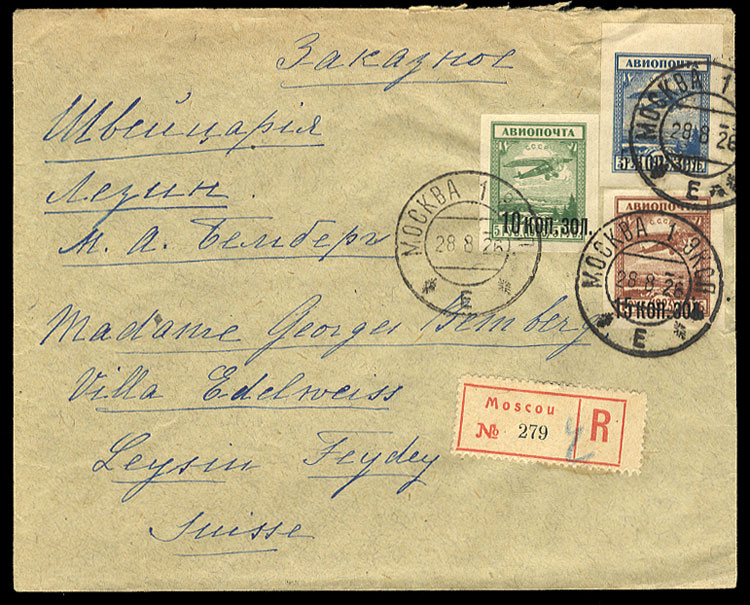 Заказное
Швейцарія
Лезин.
М. А. Бемберг
Madame Georges Bemberg
Villa Edelweiss
Leysin Feydey
Suisse
АВИОПОЧТА
СССР
10 КОП. ЗОЛ.
МОСКВА 1
28 8 26
Е
АВИОПОЧТА
МОСКВА 1
28 8 26
Е
АВИОПОЧТА
СССР
15 КОП. ЗОЛ.
МОСКВА 1 ЭКСП.
28 8 26
Е
Moscou
№ 279
R